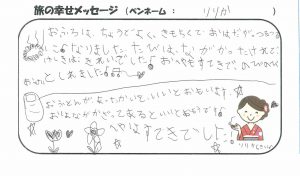 旅の幸せメッセージ（ペンネーム： りりか ）
おふろは、ちょうどよく、きもちくて おはだがつるつる
になりました。たびは、ながかったけれど
けしきは、きれいでした。おへやもすてきで、のびのび
としました
おふとんがあったかいと、いいとおもいます
おはながかざってあるといいとおもいます
へやはすてきでした！